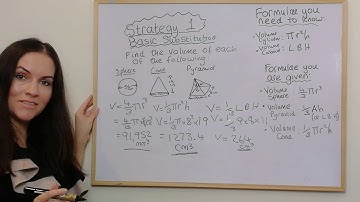 Strategy 1
Basic Substitution
Find the volume of each
of the following
Sphere
Cone
Pyramid
V = 4/3 πr³
= 4/3 × π ×
= 91,952
mm³
V = 1/3 πr²h
= 1/3 × π × 8² × 19
= 1273.4
cm³
V = 1/3 L B H
V = 1/3 × 9 × 8 × 11
V = 264
cm³
Formulae you
need to know:
Volume
πr²h
Volume
L B H
Formulae you
are given:
Volume
Sphere
4/3 πr³
Volume
Pyramid
1/3 Ah
(or LBH)
Volume
Cone
1/3 πr²h